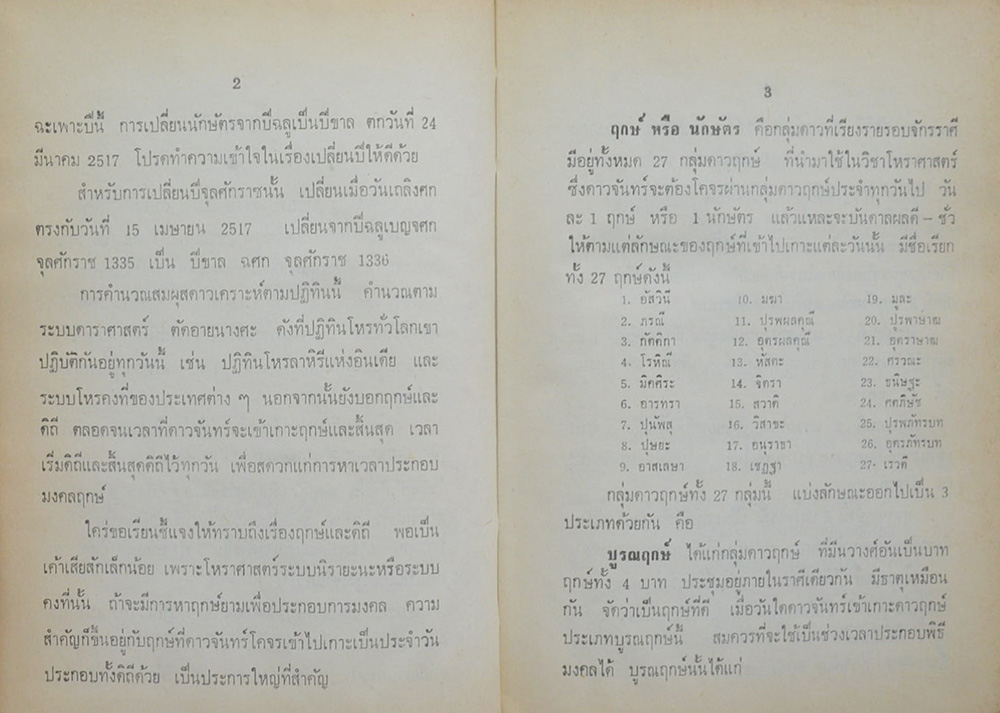 2
ฉะเพาะปีนี้ การเปลี่ยนนักษัตรจากปีฉลูเป็นปีขาล ตกวันที่ 24
มีนาคม 2517 โปรดทำความเข้าใจในเรื่องเปลี่ยนปีให้ดีด้วย
สำหรับการเปลี่ยนปีจุลศักราชนั้น เปลี่ยนเมื่อวันเถลิงศก
ตรงกับวันที่ 15 เมษายน 2517 เปลี่ยนจากปีฉลูเบญจศก
จุลศักราช 1335 เป็น ปีขาล ฉศก จุลศักราช 1336
การคำนวณสมผุสดาวเคราะห์ตามปฏิทินนี้ คำนวณตาม
ระบบดาราศาสตร์ ตัดอายนางศะ ดังที่ปฏิทินโหรทั่วโลกเขา
ปฏิบัติกันอยู่ทุกวันนี้ เช่น ปฏิทินโหรลาหิรีแห่งอินเดีย และ
ระบบโหรคงที่ของประเทศต่าง ๆ นอกจากนั้นยังบอกฤกษ์และ
ดิถี ตลอดจนเวลาที่ดาวจันทร์จะเข้าเกาะฤกษ์และสิ้นสุด เวลา
เริ่มดิถีและสิ้นสุดดิถีไว้ทุกวัน เพื่อสดวกแก่การหาเวลาประกอบ
มงคลฤกษ์
ใคร่ขอเรียนชี้แจงให้ทราบถึงเรื่องฤกษ์และดิถี พอเป็น
เค้าเสียสักเล็กน้อย เพราะโหราศาสตร์ระบบนิรายะนะหรือระบบ
คงที่นั้น ถ้าจะมีการหาฤกษ์ยามเพื่อประกอบการมงคล ความ
สำคัญก็ขึ้นอยู่กับฤกษ์ที่ดาวจันทร์โคจรเข้าไปเกาะเป็นประจำวัน
ประกอบทั้งดิถีด้วย เป็นประการใหญ่ที่สำคัญ
3
ฤกษ์ หรือ นักษัตร คือกลุ่มดาวที่เรียงรายรอบจักรราศี
มีอยู่ทั้งหมด 27 กลุ่มดาวฤกษ์ ที่นำมาใช้ในวิชาโหราศาสตร์
ซึ่งดาวจันทร์จะต้องโคจรผ่านกลุ่มดาวฤกษ์ประจำทุกวันไป วัน
ละ 1 ฤกษ์ หรือ 1 นักษัตร แล้วแหละจะบันดาลผลดี – ชั่ว
ให้ตามแต่ลักษณะของฤกษ์ที่เข้าไปเกาะแต่ละวันนั้น มีชื่อเรียก
ทั้ง 27 ฤกษ์ดังนี้
1. อัสวินี 10. มฆา 19. มูละ
2. ภรณี 11. ปุรพผลคุณี 20. ปุรพาษาฒ
3. กัตติกา 12. อุตรผลคุณี 21. อุตราษาฒ
4. โรหิณี 13. หัสตะ 22. ศรวณะ
5. มิคศิระ 14. จิตรา 23. ธนิษฐะ
6. อารทรา 15. สวาติ 24. ศตภิษัช
7. ปุนัพสุ 16. วิสาขะ 25. ปุรพภัทรบท
8. ปุษยะ 17. อนุราธา 26. อุตรภัทรบท
9. อาสเลษา 18. เชฏฐา 27. เรวดี
กลุ่มดาวฤกษ์ทั้ง 27 กลุ่มนี้ แบ่งลักษณะออกไปเป็น 3
ประเภทด้วยกัน คือ
บูรณฤกษ์ ได้แก่กลุ่มดาวฤกษ์ ที่มีนวางศ์อันเป็นบาท
ฤกษ์ทั้ง 4 บาท ประชุมอยู่ภายในราศีเดียวกัน มีธาตุเหมือน
กัน จัดว่าเป็นฤกษ์ที่ดี เมื่อวันใดดาวจันทร์เข้าเกาะดาวฤกษ์
ประเภทบูรณฤกษ์นี้ สมควรที่จะใช้เป็นช่วงเวลาประกอบพิธี
มงคลได้ บูรณฤกษ์นั้นได้แก่